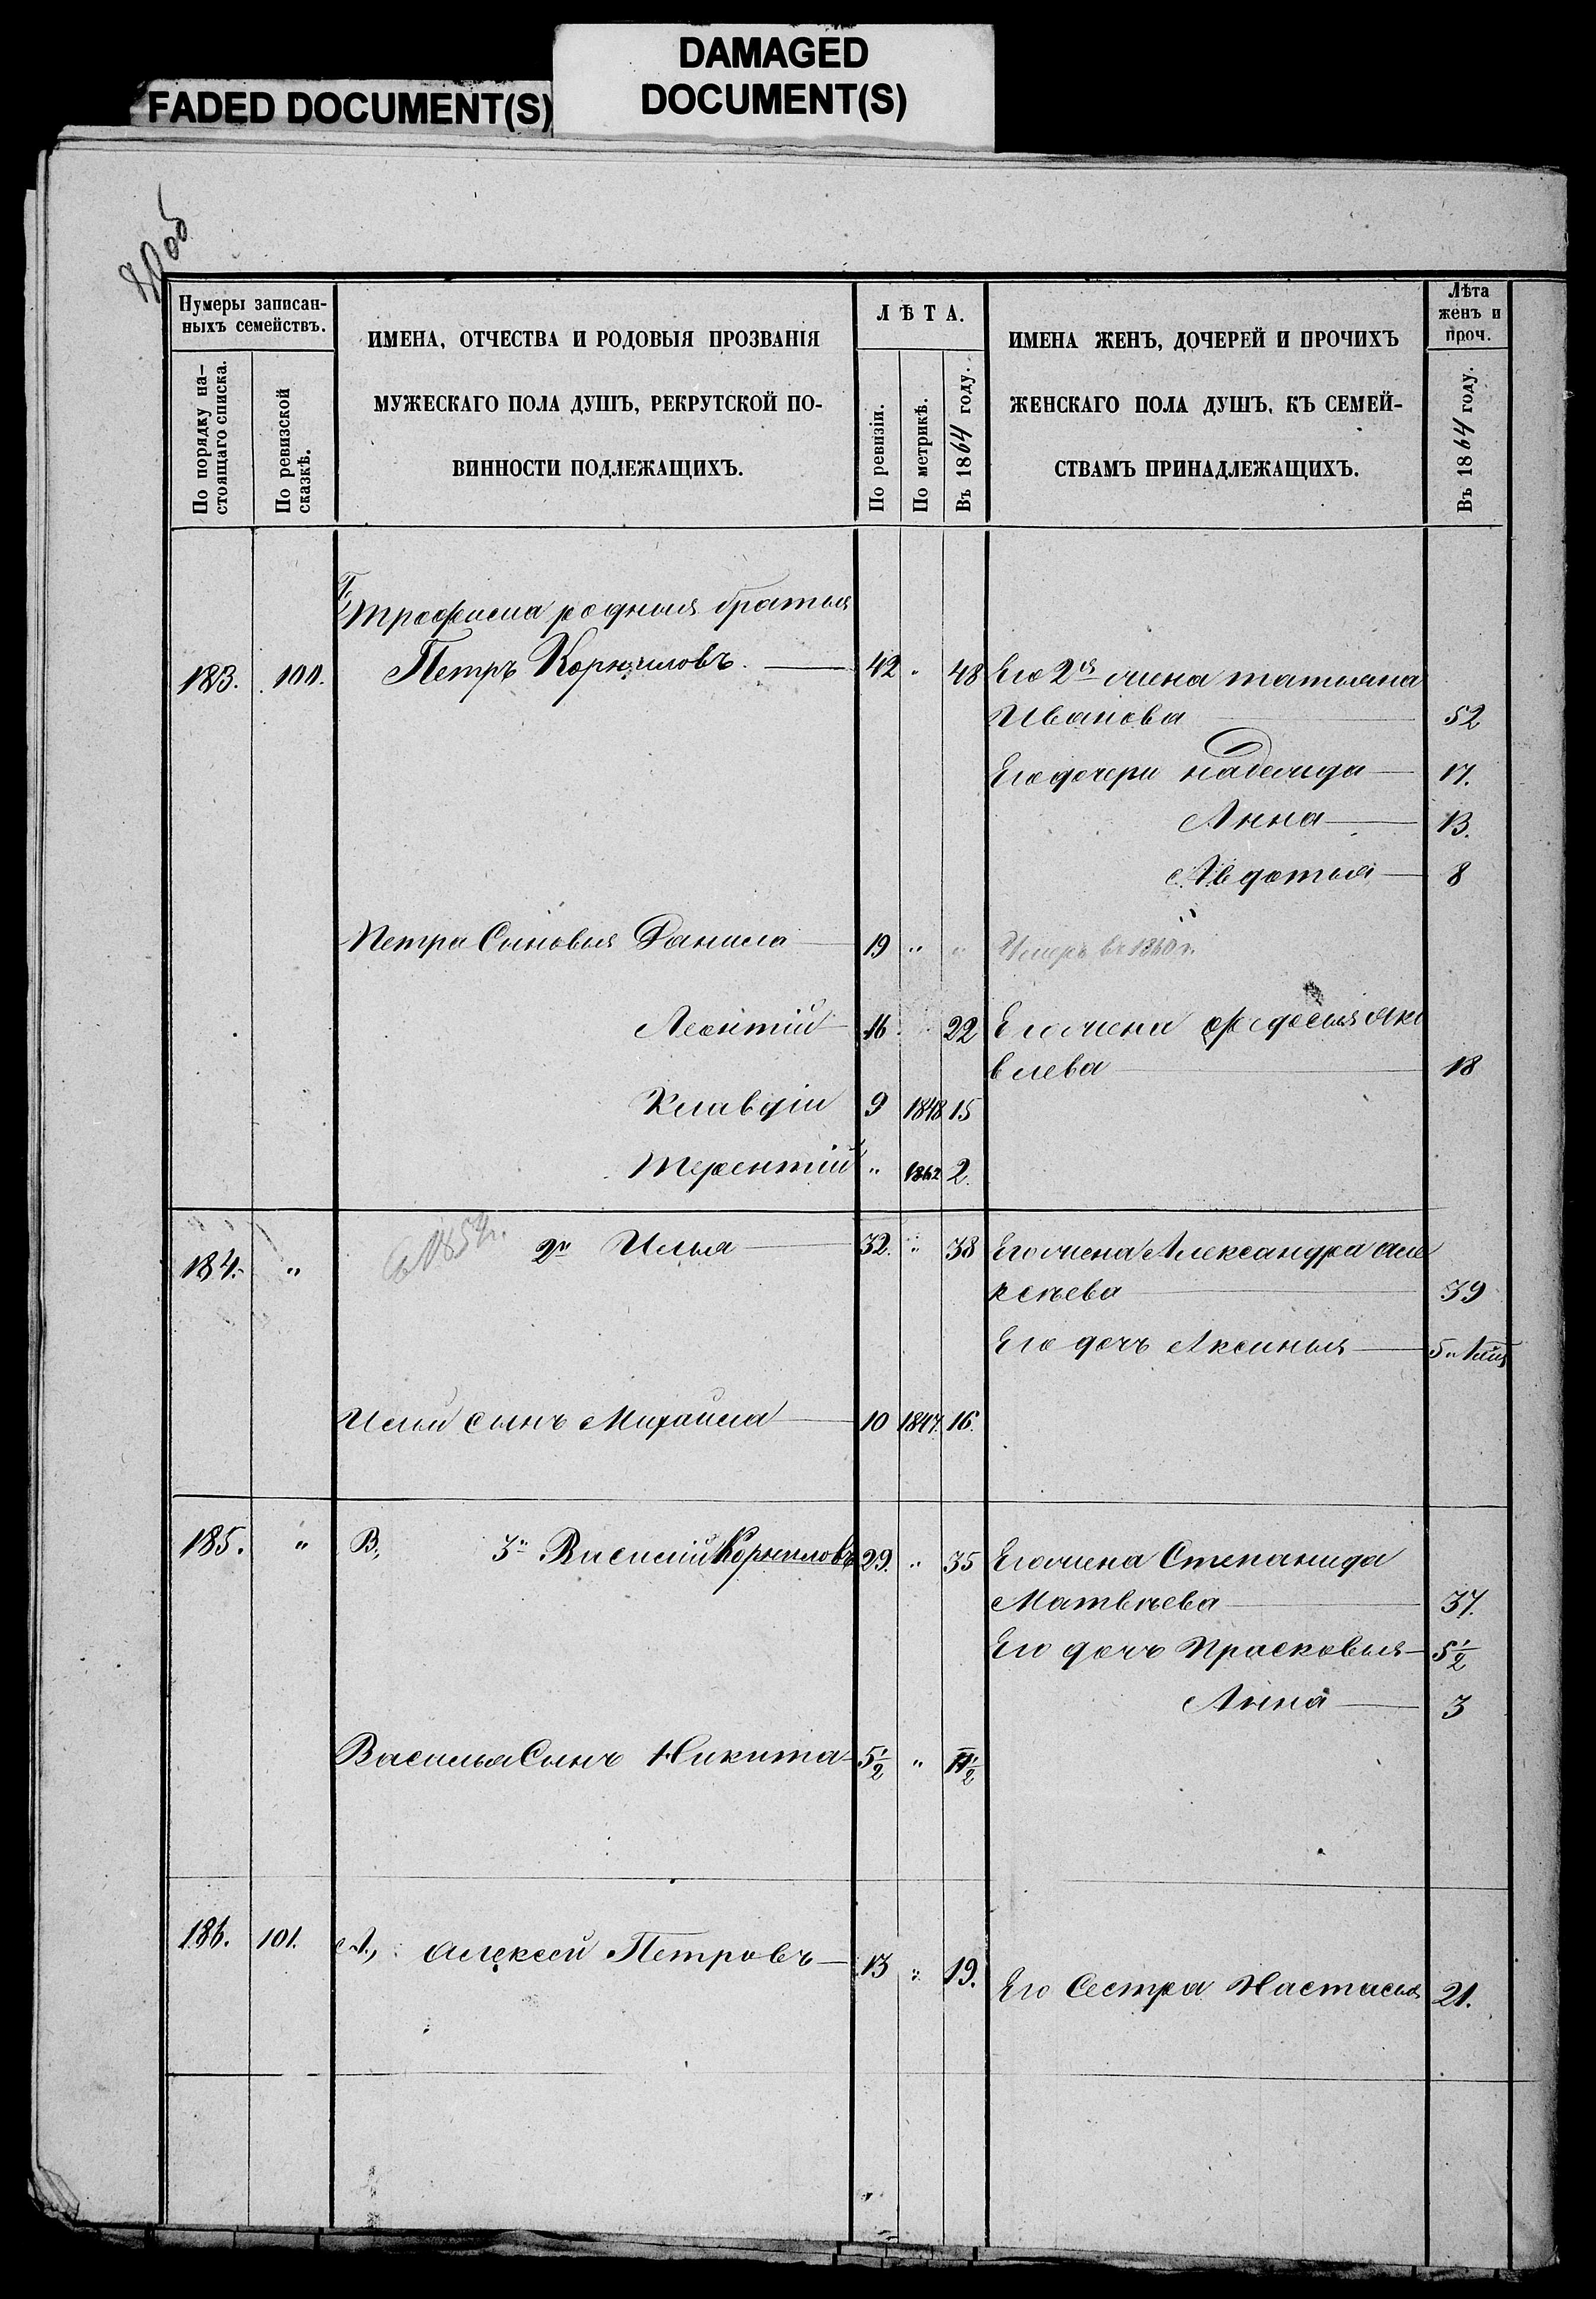 FADED DOCUMENT(S)
DAMAGED
DOCUMENT(S)
Нумеры записан-
ныхъ семействъ.
По порядку на-
стоящаго списка.
По ревизской
сказкѣ.
ИМЕНА, ОТЧЕСТВА И РОДОВЫЯ ПРОЗВАНІЯ
МУЖЕСКАГО ПОЛА ДУШЪ, РЕКРУТСКОЙ ПО-
ВИННОСТИ ПОДЛЕЖАЩИХЪ.
ЛѢТА.
По ревизіи.
По метрикѣ.
Въ 1864 году.
ИМЕНА ЖЕНЪ, ДОЧЕРЕЙ И ПРОЧИХЪ
ЖЕНСКАГО ПОЛА ДУШЪ, КЪ СЕМЕЙ-
СТВАМЪ ПРИНАДЛЕЖАЩИХЪ.
Лѣта
женъ и
проч.
Въ 1864 году.
Трофима родныя братья
183. 100. Петръ Корниловъ. 42 " 48 Его 2я жена татьяна
Иванова 52
Его дочери надежда 17.
Анна 13.
Авдотья 8
Петра Сыновья Данила 19 " " Умеръ въ 1860 г.
Леонтій 16 " 22 Его жена федосья Яко
влева 18
Клавдіи 9 1848 15
Терентій " 1862 2.
184. " 2й Илья 32. " 38 Его жена Александра Але
ксѣева 39
Его дочь Аксинья
Ильи сынъ Михаила 10 1847. 16.
185. " В, 3й Василій Корниловъ 29. " 35 Его жена Степанида
Матвѣева 37.
Его дочь Прасковья 5 1/2
Анна 3
Василья Сынъ Никита 5 1/2 " 11 1/2
186. 101. А, Алексей Петровъ 13 " 19.
Его Сестра Настасья 21.